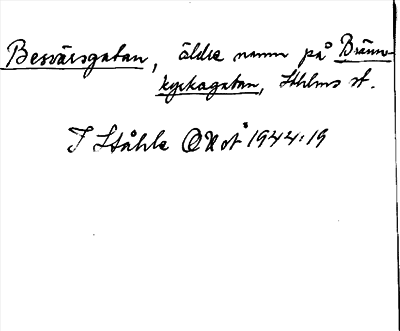 Besvärsgatan, äldre namn på Bränn-
kyrkagatan, Sthlms st.
I Ståhle ONoÅ 1944:19